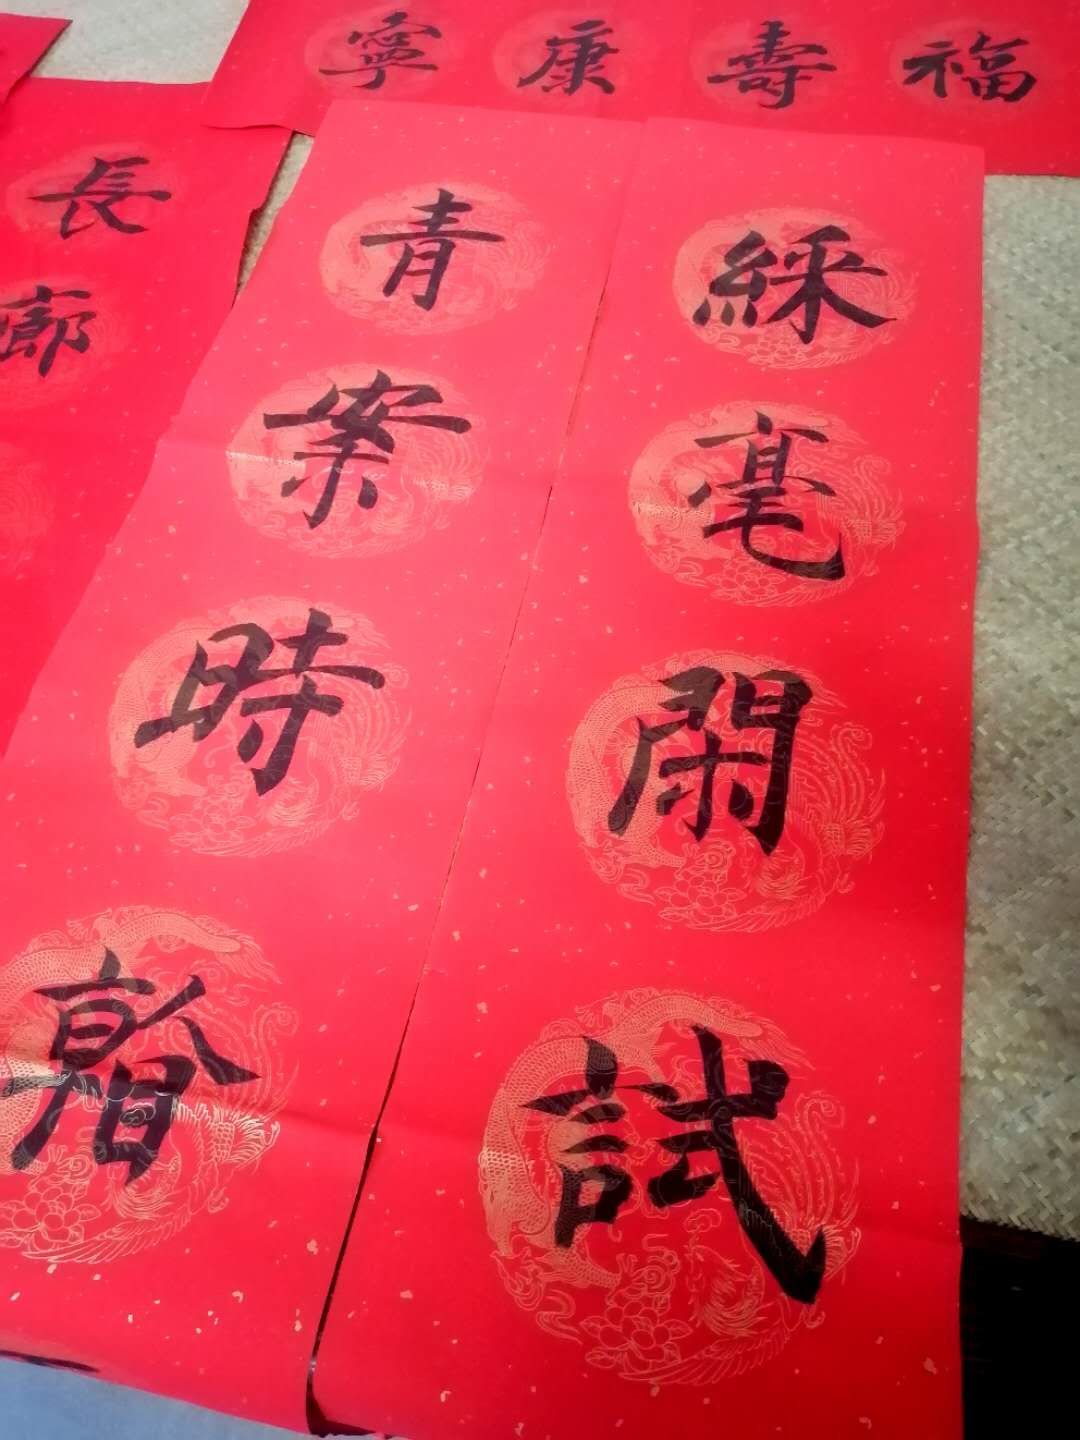 福壽康寧
綵毫閑試
青案時看
長廊